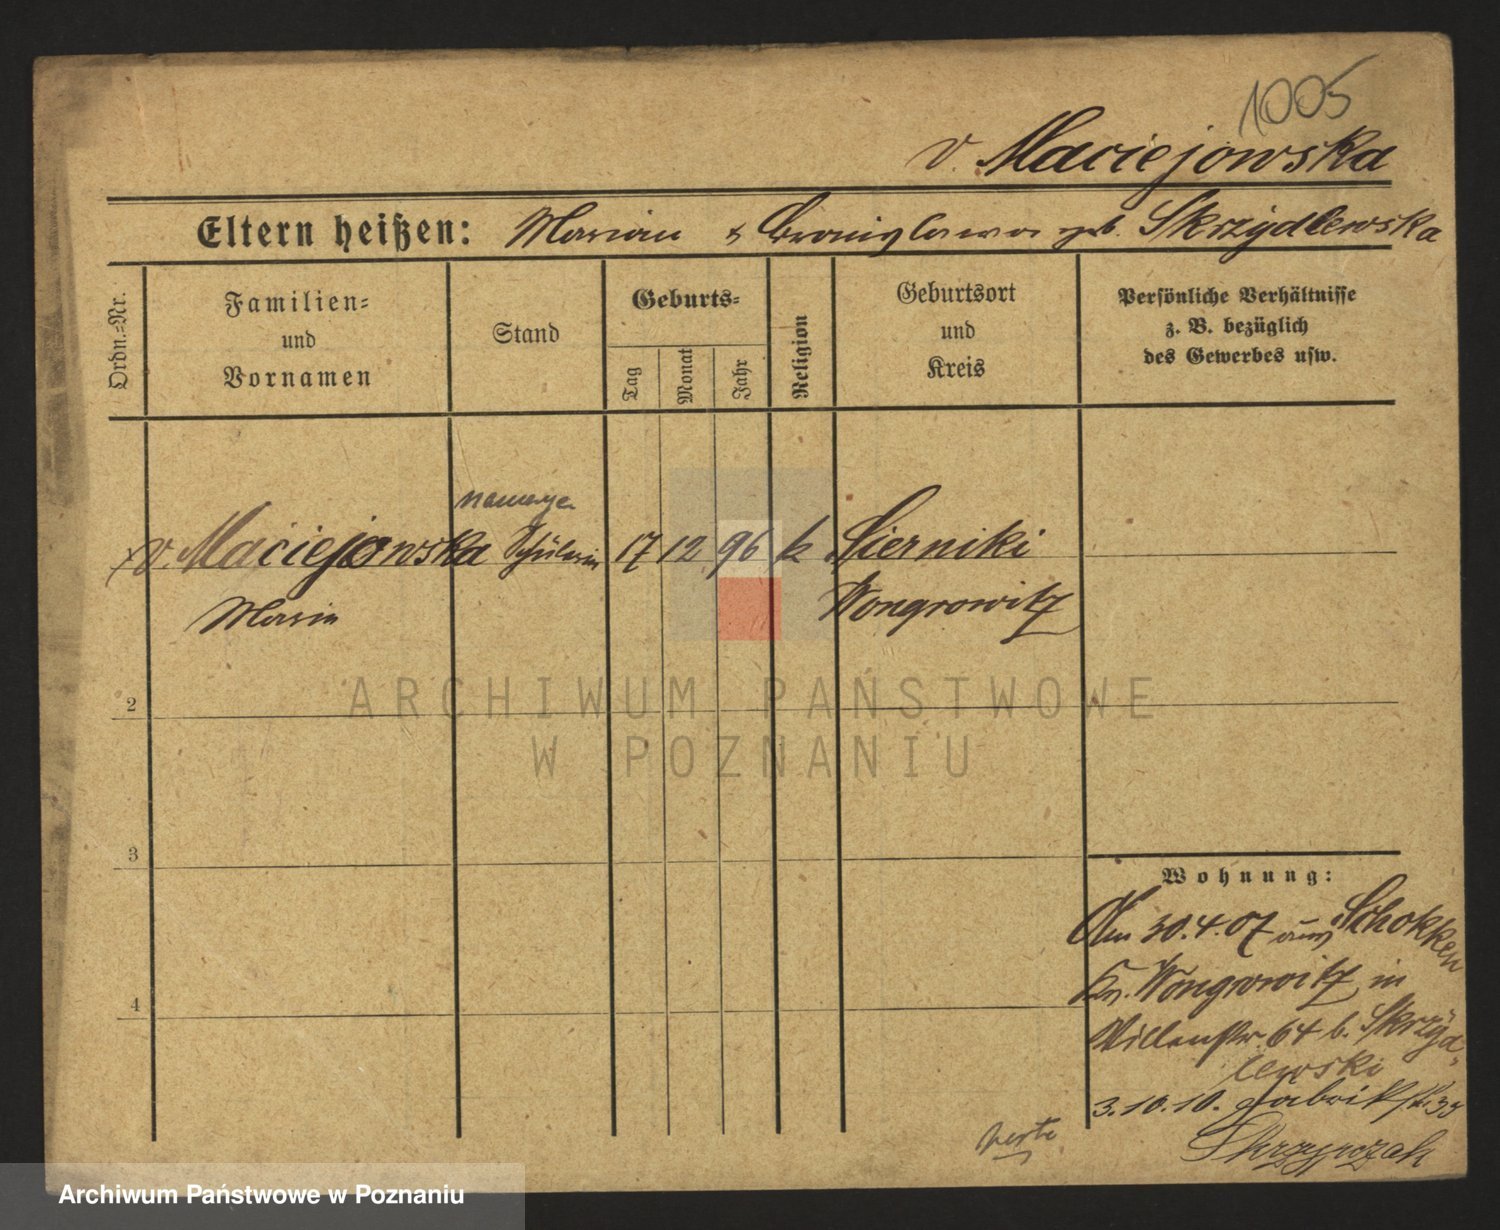 1005
v. Maciejowska
Eltern heißen: Marian & Bronislawa geb. Skrzydlewska
Ordn.-Nr.
Familien-
und
Vornamen
Stand
Geburts-
Tag
Monat
Jahr
Religion
Geburtsort
und
Kreis
Persönliche Verhältnisse
z. B. bezüglich
des Gewerbes usw.
v. Maciejowska Schülerin 17 12 96 k Sierniki
Maria Wongrowitz
ARCHIWUM PAŃSTWOWE
W POZNANIU
2
3
4
Wohnung:
Am 30.4.07 aus Schokken
Kr. Wongrowitz in
Villenstr. 64 b. Skrzyd-
lewski
3.10.10. Fabrikstr. 35
Skrzypczak
Archiwum Państwowe w Poznaniu